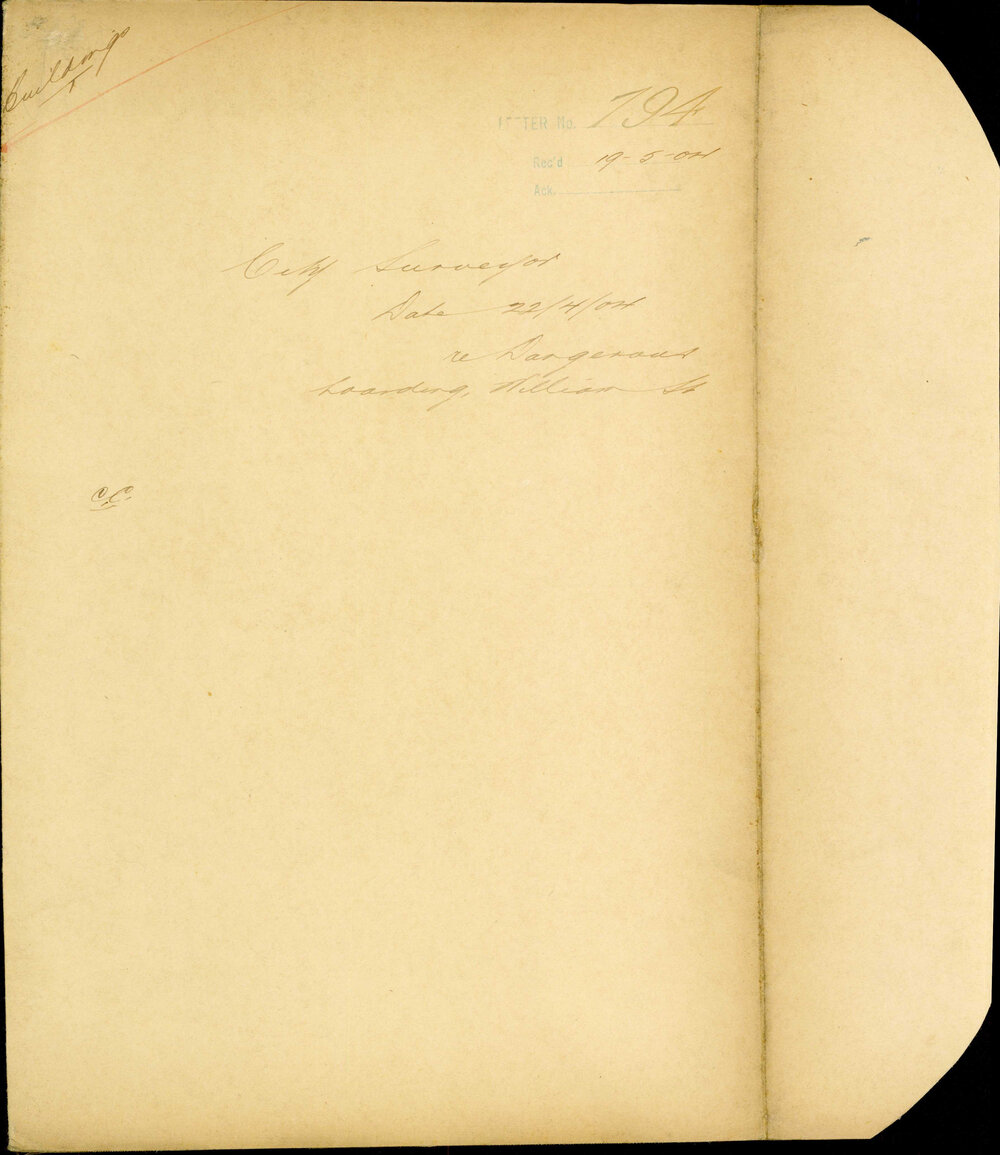 Buildings
LETTER No. 794
Rec'd 19-5-04
Ack.
City Surveyor
Date 22/4/04
re Dangerous
hoarding, William St
C.C.